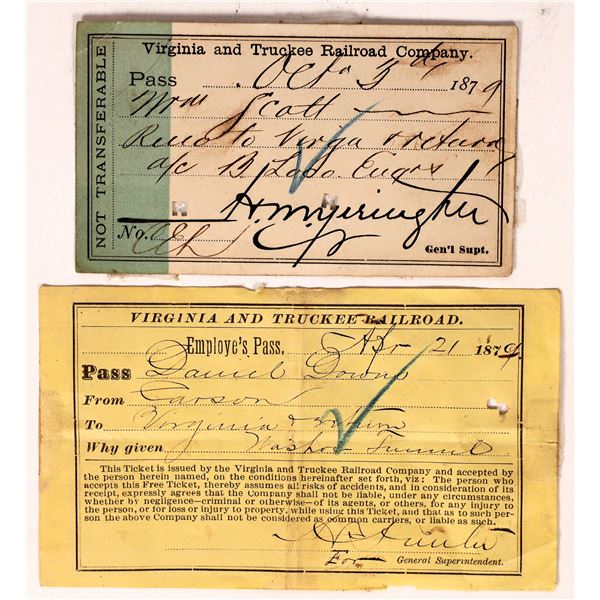 NOT TRANSFERABLE
Virginia and Truckee Railroad Company.
Pass Oct 3d 1879
Wm Scott
Reno to Virga & return
a/c B.
H M Yerington
No.
Gen'l Supt.
VIRGINIA AND TRUCKEE RAILROAD.
Employe's Pass. Apr 21 1879
Pass Daniel Downs
From Carson
To Virginia & return
Why given
This Ticket is issued by the Virginia and Truckee Railroad Company and accepted by
the person herein named, on the conditions hereinafter set forth, viz: The person who
accepts this Free Ticket, thereby assumes all risks of accidents, and in consideration of its
receipt, expressly agrees that the Company shall not be liable, under any circumstances,
whether by negligence—criminal or otherwise—of its agents, or others, for any injury to
the person, or for loss or injury to property, while using this Ticket, and that as to such per-
son the above Company shall not be considered as common carriers, or liable as such.
For General Superintendent.